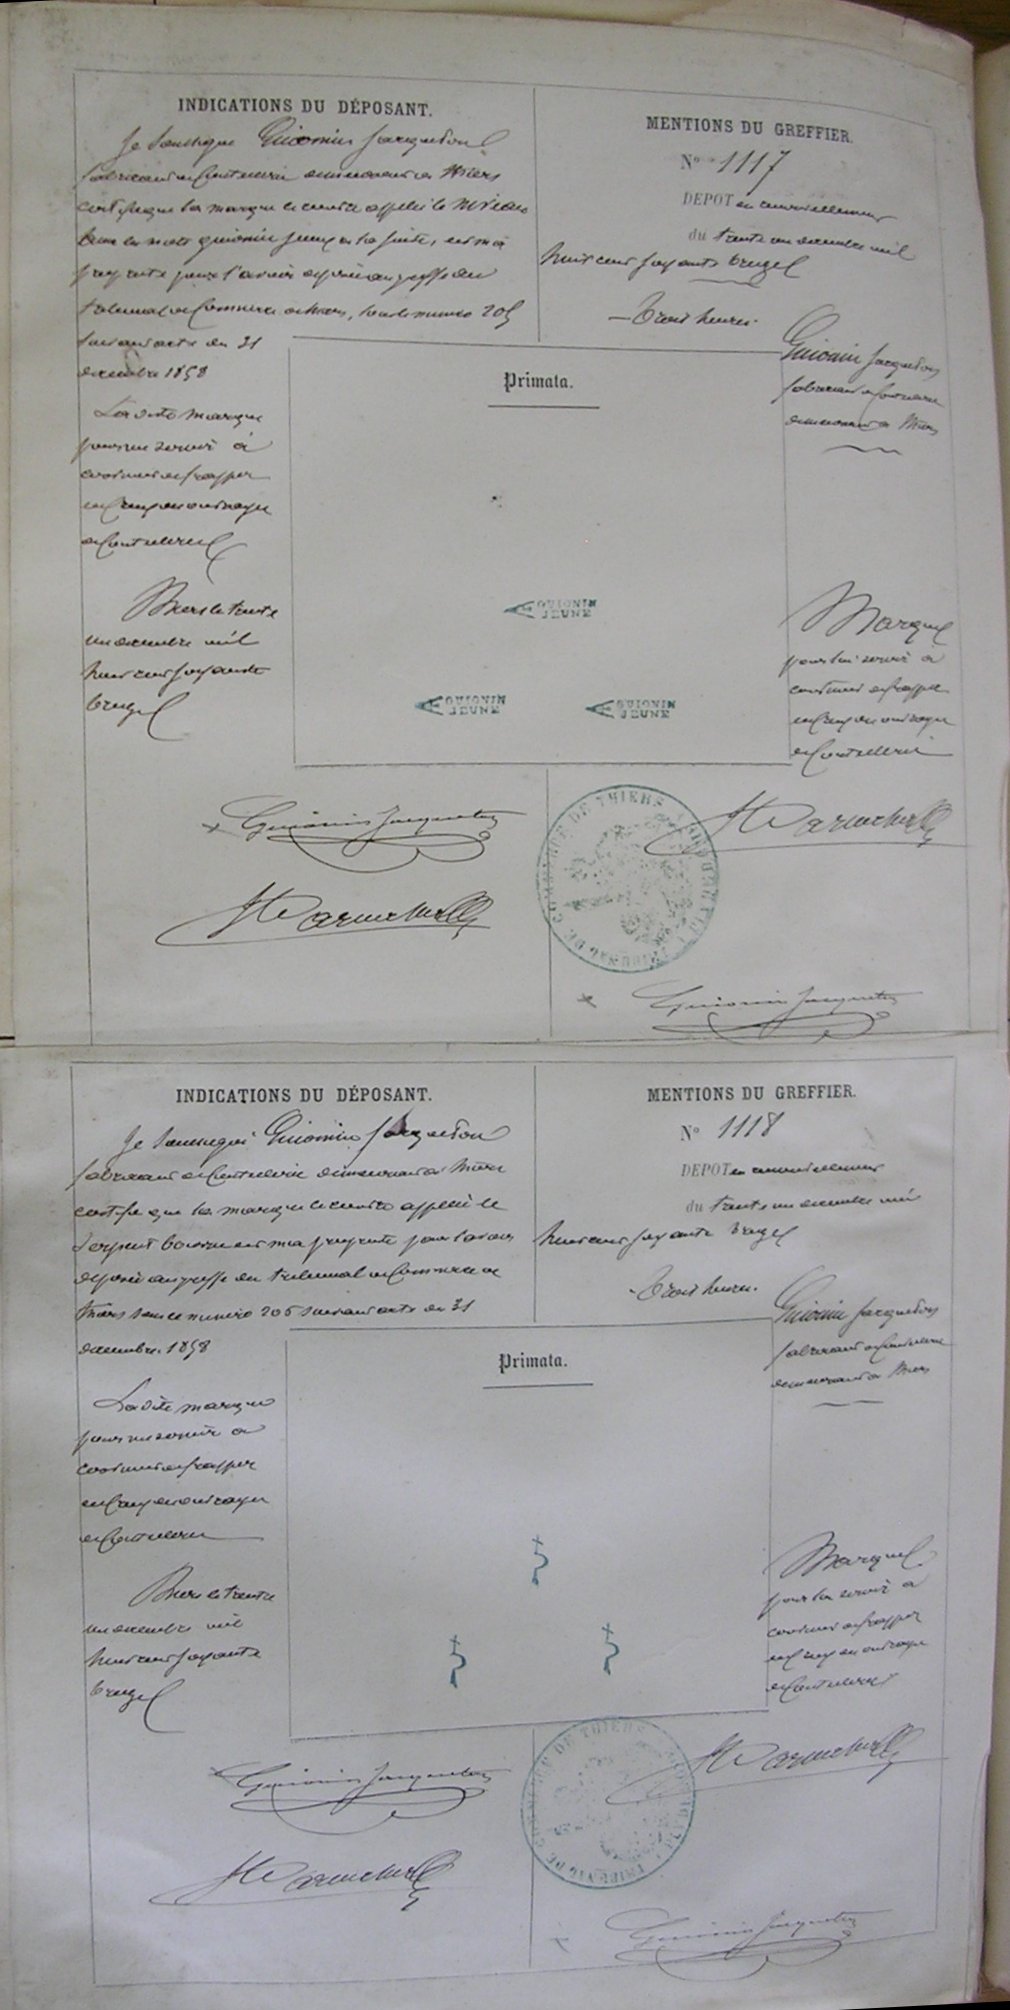 INDICATIONS DU DÉPOSANT.
Je soussigné Guionin Jacqueton
fabricant de Coutellerie demeurant à Thiers
certifie que la marque ci contre appelée le niveau
les mots guionin jeune à la suite, est ma
propriété pour l'avoir déposée au greffe du
tribunal de Commerce de Thiers, sous le numéro 205
suivant acte du 31
décembre 1858
La dite marque
pour me servir à
continuer de frapper
en creux des ouvrages
de Coutellerie
Thiers le trente
un décembre mil
huit cent soixante
treize
MENTIONS DU GREFFIER.
N° 1117
DEPOT en renouvellement
du trente un décembre mil
huit cent soixante treize
Trois heures.
Guionin Jacqueton
fabricant de Coutellerie
demeurant à Thiers
Primata.
A GUIONIN
JEUNE
A GUIONIN
JEUNE
A GUIONIN
JEUNE
Marque
pour lui servir à
continuer de frapper
en creux des ouvrages
de Coutellerie
Guionin Jacqueton
TRIBUNAL DE COMMERCE DE THIERS
Guionin Jacqueton
INDICATIONS DU DÉPOSANT.
Je soussigné Guionin Jacqueton
fabricant de Coutellerie demeurant à Thiers
certifie que la marque ci contre appelée le
serpent couronné est ma propriété pour l'avoir
déposée au greffe du tribunal de Commerce de
Thiers sous le numéro 206 suivant acte du 31
décembre 1858
La dite marque
pour me servir à
continuer de frapper
en creux des ouvrages
de Coutellerie
Thiers le trente
un décembre mil
huit cent soixante
treize
MENTIONS DU GREFFIER.
N° 1118
DEPOT en renouvellement
du trente un décembre mil
huit cent soixante treize
Trois heures.
Guionin Jacqueton
fabricant de Coutellerie
demeurant à Thiers
Primata.
Marque
pour lui servir à
continuer de frapper
en creux des ouvrages
de Coutellerie
Guionin Jacqueton
TRIBUNAL DE COMMERCE DE THIERS
Guionin Jacqueton